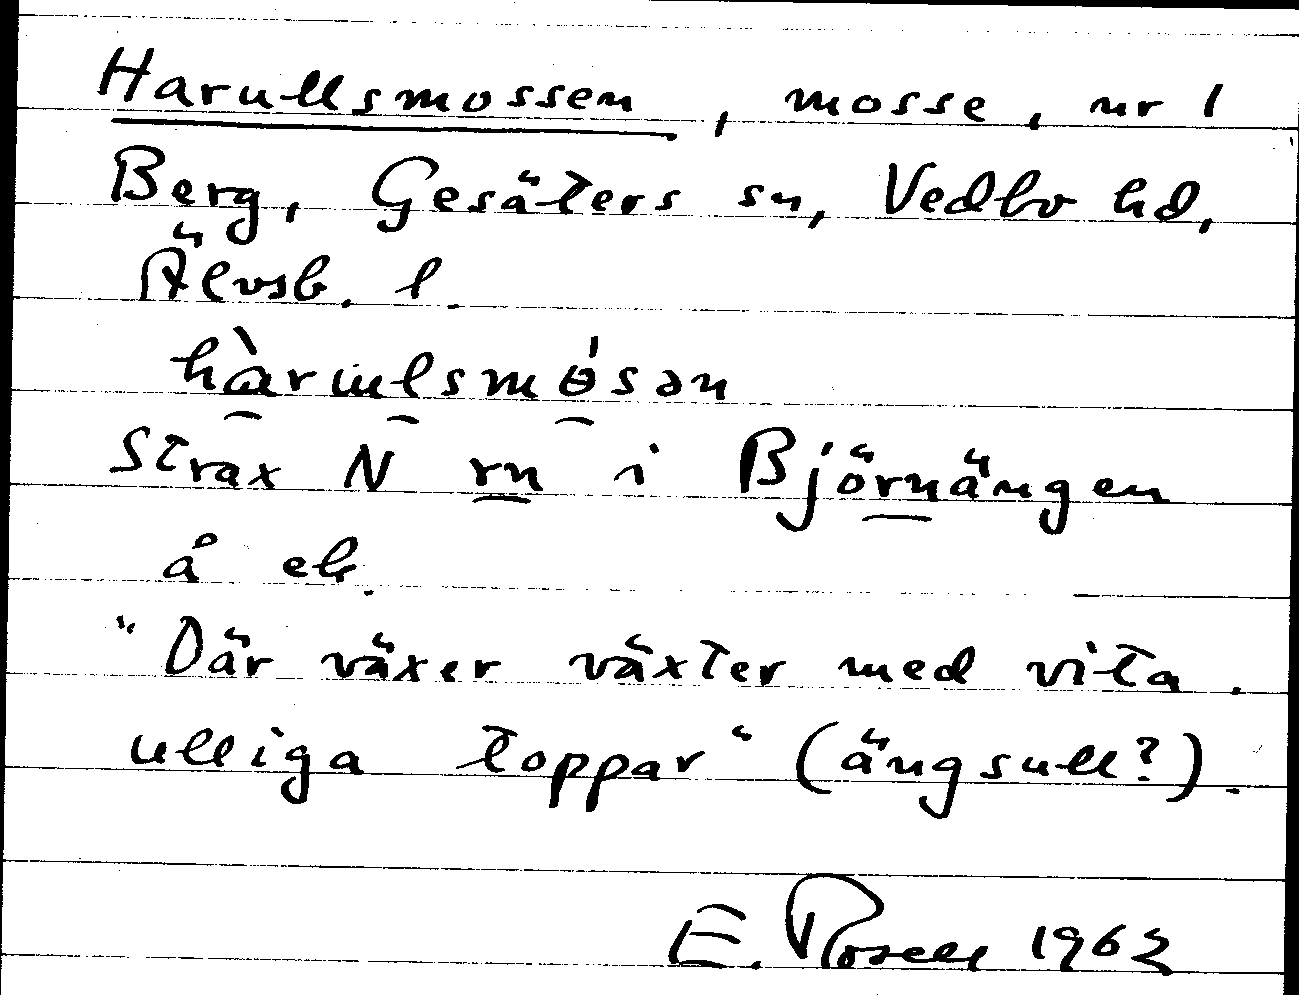 Harullsmossen, mosse, nr 1
Berg, Gesäters sn, Vedbo hd,
Älvsb. l.
Strax N rn i Björnängen
å ek.
"Där växer växter med vita
ulliga toppar" (ängsull?).
E. Rosell 1963